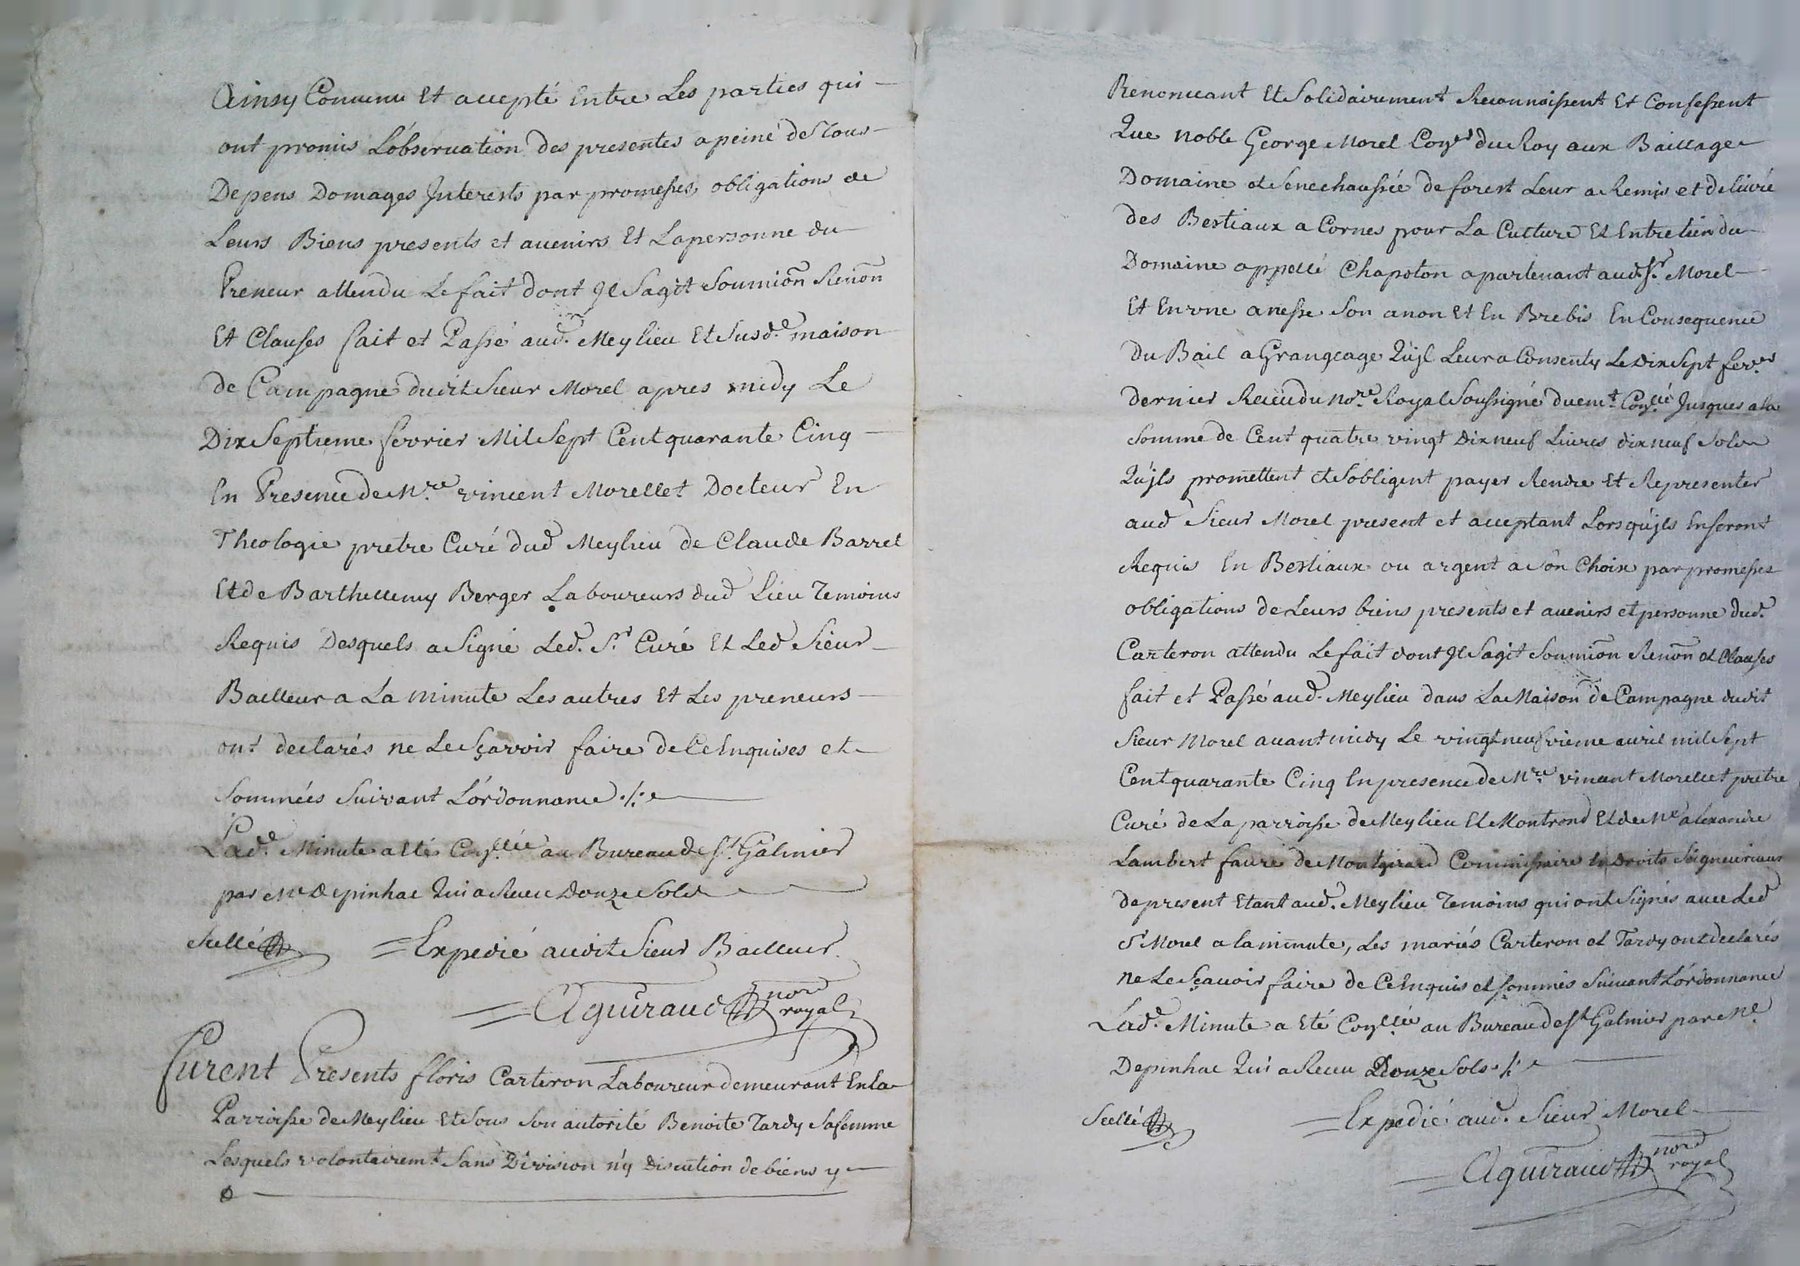 Ainsy Convenu Et accepté Entre Les parties qui
ont promis L'observation des presentes a peine de Tous
Depens Domages Interests par promesses obligations de
Leurs Biens presents et avenirs Et Lapersonne du
Preneur attendu Le fait dont Il Sagit Soumion Renon
Et Clauses fait et Passé aud. Meylieu Et Susd.e maison
de Campagne dudit Sieur Morel apres midy Le
Dix Septieme fevrier Mil Sept Cent quarante Cinq
En Presence de Mre vincent Morellet Docteur En
Theologie pretre Curé dud Meylieu de Claude Barrel
Et de Barthellemy Berger Laboureurs dud Lieu Temoins
Requis Desquels a Signé Led. Sr Curé Et Led Sieur
Bailleur a La minute Les autres Et Les preneurs
ont declarés ne Le Sçavoir faire de Ce Enquises et
Sommées Suivant L'ordonnance ./.
Lad.e Minute a Eté Con.llée au Bureau de St Galmier
par Me Depinhac Qui a Receu Douze Sols
Scellé = Expedié audit Sieur Bailleur
= Aguiraud nore royal
Furent Presents floris Carteron Laboureur demeurant En la
Parroisse de Meylieu Et Sous Son autorité Benoite Tardy Safemme
Lesquels volontairemt. Sans Division n'y Discution de biens y
Renonceant Et Solidairement Reconnoissent Et Confessent
Que noble George Morel Coner du Roy aux Baillage
Domaine et Senechaussée de forest Leur a Remis et delivré
des Bestiaux a Cornes pour La Culture Et Entretien du
Domaine appellé Chapoton apartenant aud. Sr. Morel
Et En vne anesse Son anon Et En Brebis En Consequence
Du Bail a Grangeage Qu'jl Leur a Consenty Le dix Sept fevr
dernier Receu du Nore Royal Soussigné duemt. Conllé Jusques a la
Somme de Cent quatre vingt Dix neuf Livres dix neuf Sols
Qu'jls promettent et S'obligent payer Rendre Et Representer
aud Sieur Morel present et acceptant Lorsqu'jls En Seront
Requis En Bestiaux ou argent a Son Choix par promesses
obligations de Leurs biens presents et avenirs et personne dud.
Carteron attendu Le fait dont Jl Sagit Soumion Renon et Clauses
fait et Passé aud. Meylieu dans La Maison de Campagne dudit
Sieur Morel avant midy Le vingt neufvieme avril mil Sept
Cent quarante Cinq En presence de Mre vincent Morellet pretre
Curé de La parroisse de Meylieu Et Montrond Et de Me alexandre
Lambert faure de Montgirard Commissaire En Droits Seigneuriaux
de present Etant aud. Meylieu Temoins qui ont Signés avec Led
Sr Morel a la minute, Les mariés Carteron et Tardy ont declarés
ne Le Sçavoir faire de Ce Enquis et Sommés Suivant L'ordonnance
Lad.e Minute a Eté Conllée au Bureau de St Galmier par Me
Depinhac Qui a Receu Douze Sols ./.
Scellé = Expedié aud. Sieur Morel
= Aguiraud nore royal